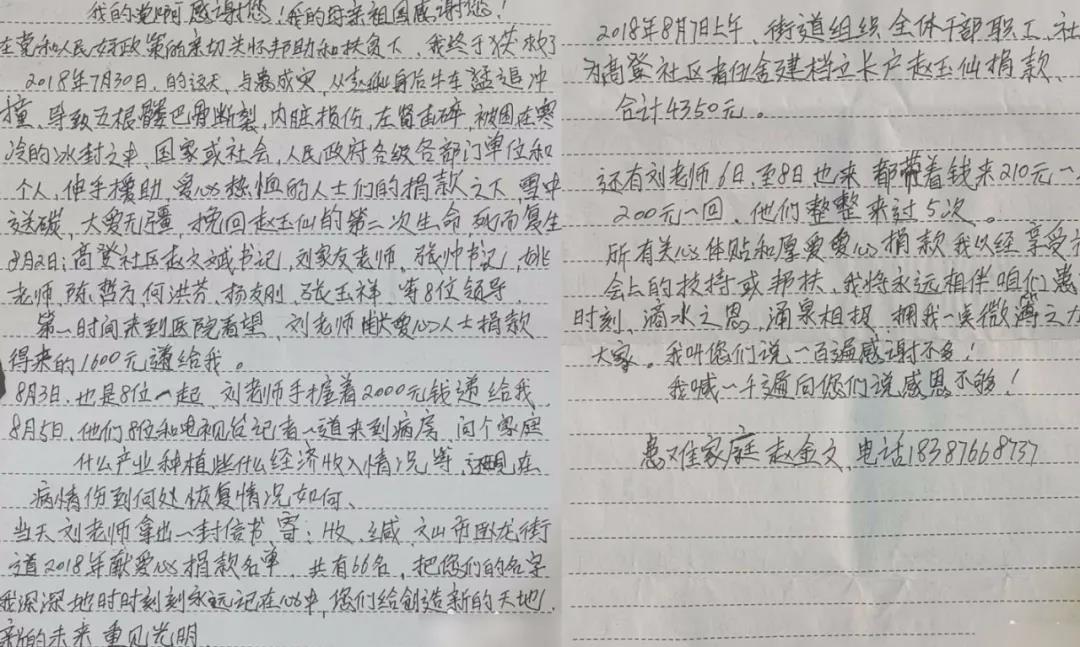 我的党啊感谢您！我的母亲祖国感谢您！
在党和人民好政策的亲切关怀帮助和扶贫下、我终于获救了
2018年7月30日、的这天、与患成灾、从赵仙身后牛车猛追冲
撞、导致五根髅巴骨断裂，内脏损伤，左肾击碎，被困在寒
冷的冰封之中、国家或社会，人民政府各级各部门单位和
个人，伸手援助，爱心热恤的人士们的捐款之下，雪中
送碳，大爱无疆，挽回赵玉仙的第二次生命 死而复生
8月2日；高登社区赵文斌书记，刘家友老师、张帅书记，姚
老师，陈哲方，何洪芳、杨友刚，张玉祥，等8位领导，
第一时间来到医院看望，刘老师献爱心人士捐款
得来的1600元递给我。
8月3日、也是8位一起，刘老师手握着2000元钱递给我
8月5日，他们8位和电视台记者一道来到病房，问个家庭
什么产业种植些什么经济收入情况等，还现在
病情伤到何处恢复情况如何、
当天刘老师拿出一封信书，写；收，缄，文山市卧龙街
道2018年献爱心捐款名单，共有66名，把您们的名字
我深深地时时刻刻永远记在心中，您们给创造新的天地，
新的未来 重见光明
2018年8月7日上午、街道组织全体干部职工、社
为高登社区者伍舍建档立卡户赵玉仙捐款、
合计4350元。
还有刘老师6日，至8日也来都带着钱来210元一
200元一回，他们整整来过5次。
所有关心体贴和厚爱爱心捐款我以经享受
会上的扶持或帮扶、我将永远相伴咱们患
时刻，滴水之恩，涌泉相报，拥我一点微薄之力
大家。我叫您们说一百遍感谢不多！
我喊一千遍向您们说感恩不够！
患难家庭 赵金文，电话18387668737